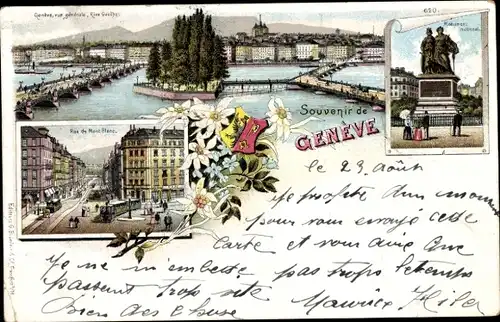 Genève, vue générale, Rive Gauche.
610.
Monument national.
Souvenir de
GENÈVE
Rue du Mont-Blanc.
le 29 Août
je profite d'un moment
pour vous envoyé cette
Carte et vous dire que
Je ne m'embete pas trop le temps
passent trop vite Maurice
bien des chose